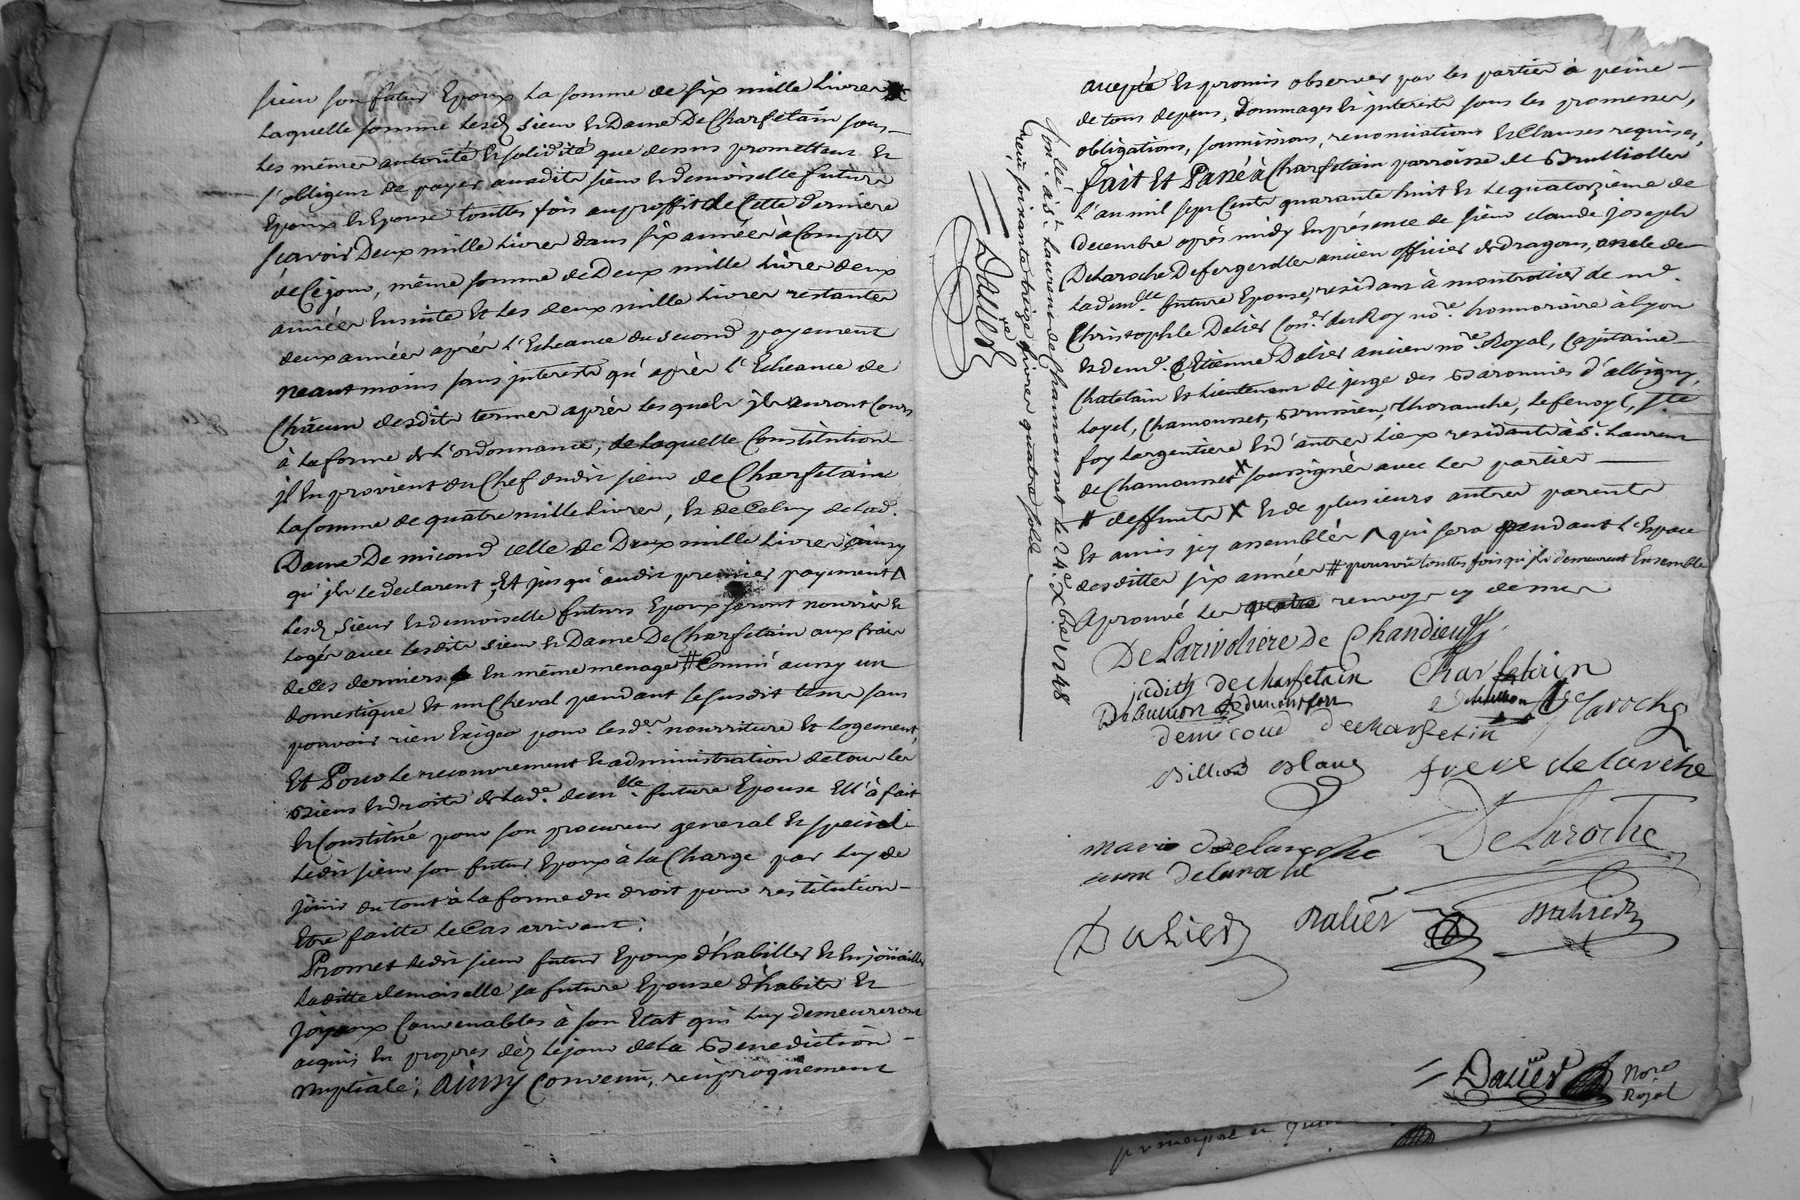 sieur son futur Epoux La somme de six mille Livres
Laquelle somme Lesd. sieur et Dame De Charfetain sous
Les mêmes autorité et solidité que dessus promettent et
s'obligent de payer auxdits sieur et demoiselle futurs
Epoux et Epouse touttes fois au proffit de Cette derniere
sçavoir Deux mille Livres dans six années à Compter
de Ce jour, même somme de Deux mille Livres deux
années Ensuite Et Les deux mille Livres restantes
deux années après L'Echeance du second payement
neantmoins sans jnterests qu'après L'Echeance de
Châcun desdits termes après Lesquels jls auront Cours
à La forme de L'ordonnance, de Laquelle Constitution
jl En provient du Chef dudit sieur de Charfetain
La somme de quatre mille Livres, et de Celuy de Lad.
Dame De micoud celle de Deux mille Livres ainsy
qu'jls Le declarent, Et jusqu'audit premier payement ^
Lesd. sieur et demoiselle futurs Epoux seront nourris et
Logés avec Lesdits sieur et Dame De Charfetain aux frais
de Ces derniers En même menage, # Comm' aussy un
domestique Et un Cheval pendant Le susdit tems sans
pouvoir rien Exiger pour Lesd. nourriture et Logement,
Et Pour Le recouvrement et administration de tous Les
Biens et droits de Lad. demlle. future Epouse Ell' à fait
et Constitué pour son procureur general et special
Ledit sieur son futur Epoux à La Charge par Luy de
jouir du tout à La forme du droit pour restitution
Etre faitte Le Cas arrivant;
Promet Ledit sieur futur Epoux d'habiller et Enjoüailler
Laditte demoiselle sa future Epouse d'habits et
joyaux Convenables à son Etat qui Luy demeureront
acquis En propres dèz Le jour de La Benediction
Nuptiale; Ainsy Convenu, reciproquement
accepté Et promis observer par Les parties à peine
de tous depens, dommages et jnterests sous Les promesses,
obligations, soumissions, renonciations et Clauses requises,
fait Et Passé à Charfetain parroisse de Brullioles
L'an mil sept Cents quarante huit et Le quatorzieme de
Decembre après midy En présence de sieur claude joseph
DeLaroche ancien officier de dragons, oncle de
Lad. demlle. future Epouse, residant à montrotier de me.
Christophle Dalier Conr. du Roy nore. honnoraire à Lyon
et de me. Etienne Dalier ancien nore Royal, Capitaine
Chatelain et Lieutenant de juge des Baronnies d'albigny,
Loyet, Chamousset, Thoranche, ste
foy Largentiere Et d'autres Lieux residants à st. Laurent
de Chamousset X soussignés avec Les parties
# deffunte X et de plusieurs autres parents
Et amis jcy assemblés ^ qui sera pendant L'Espace
desdittes six années # pourvû touttes fois qu'jls demeurent Ensemble
Aprouvé Les quatre renvoys cy dessus
De Larivoliere De Chandieu
judith de charfetain Charfetain
De Laroche
demicoud de charfetin
Billion Blanc frere de laroche
marie De laroche De Laroche
anne De laroche
Dalier Dalier
Dalier Nore
Royal
Conllé. à St. Laurent de Chamousset le 24e. Xbre 1748
reçu soixante treize Livres quatre sols
Dalier